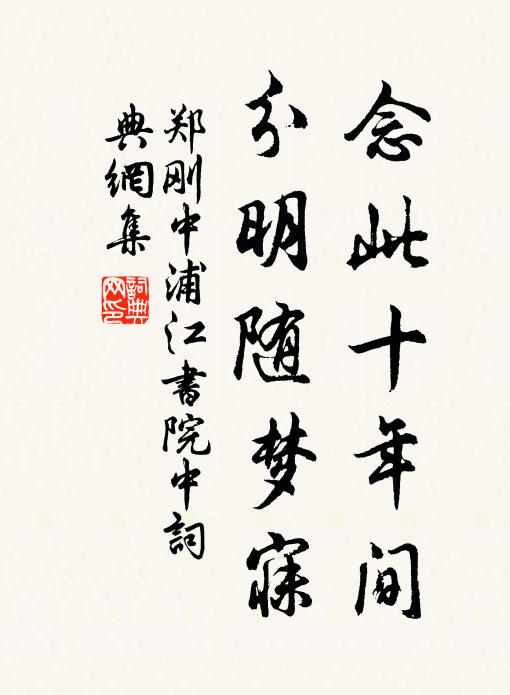 念此十年间
分明随梦寐
郑刚中浦江書院中詞
典網集
詞典网印